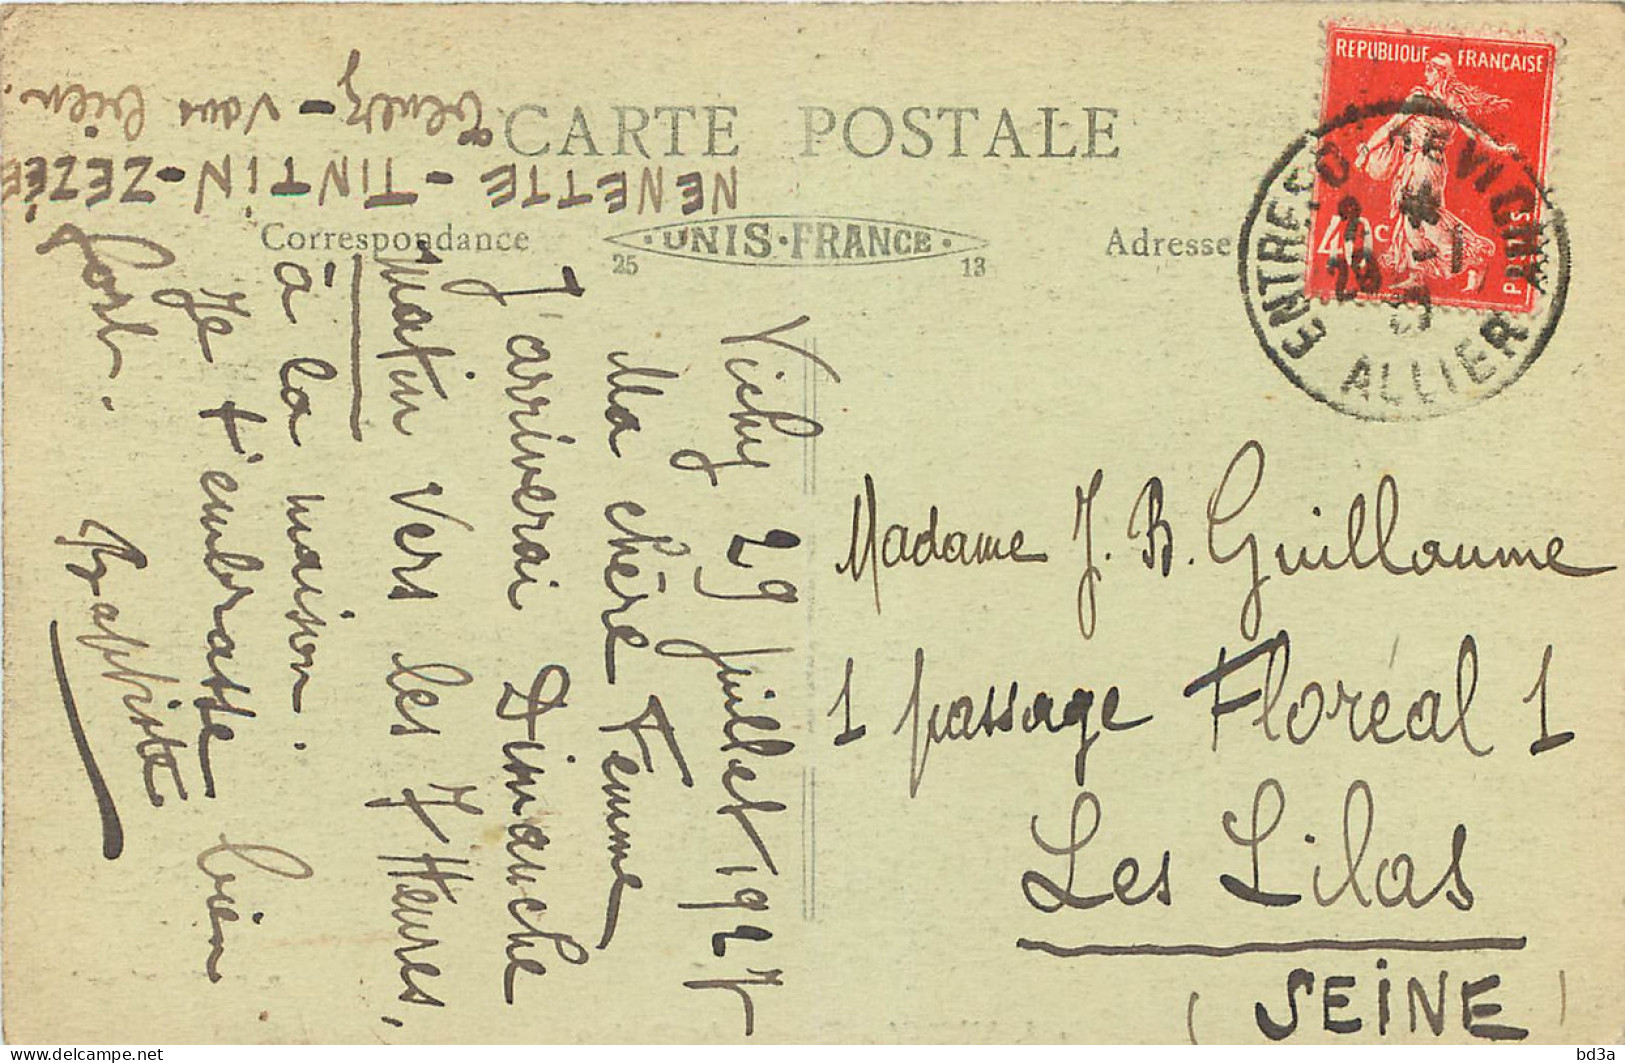 CARTE POSTALE
Correspondance
UNIS-FRANCE
25 13
Adresse
REPUBLIQUE FRANÇAISE
POSTES
ALLIER
Vichy 29 juillet 1927
Ma chère Femme
J'arriverai Dimanche
matin vers les 7 Heures,
à la maison.
Je t'embrasse bien
fort.
Baptiste
NENETTE - TINTIN - ZEZÉE
Tenez-vous bien.
Madame J. B. Guillaume
1 passage Floréal 1
Les Lilas
(SEINE)
delcampe.net
bd3a